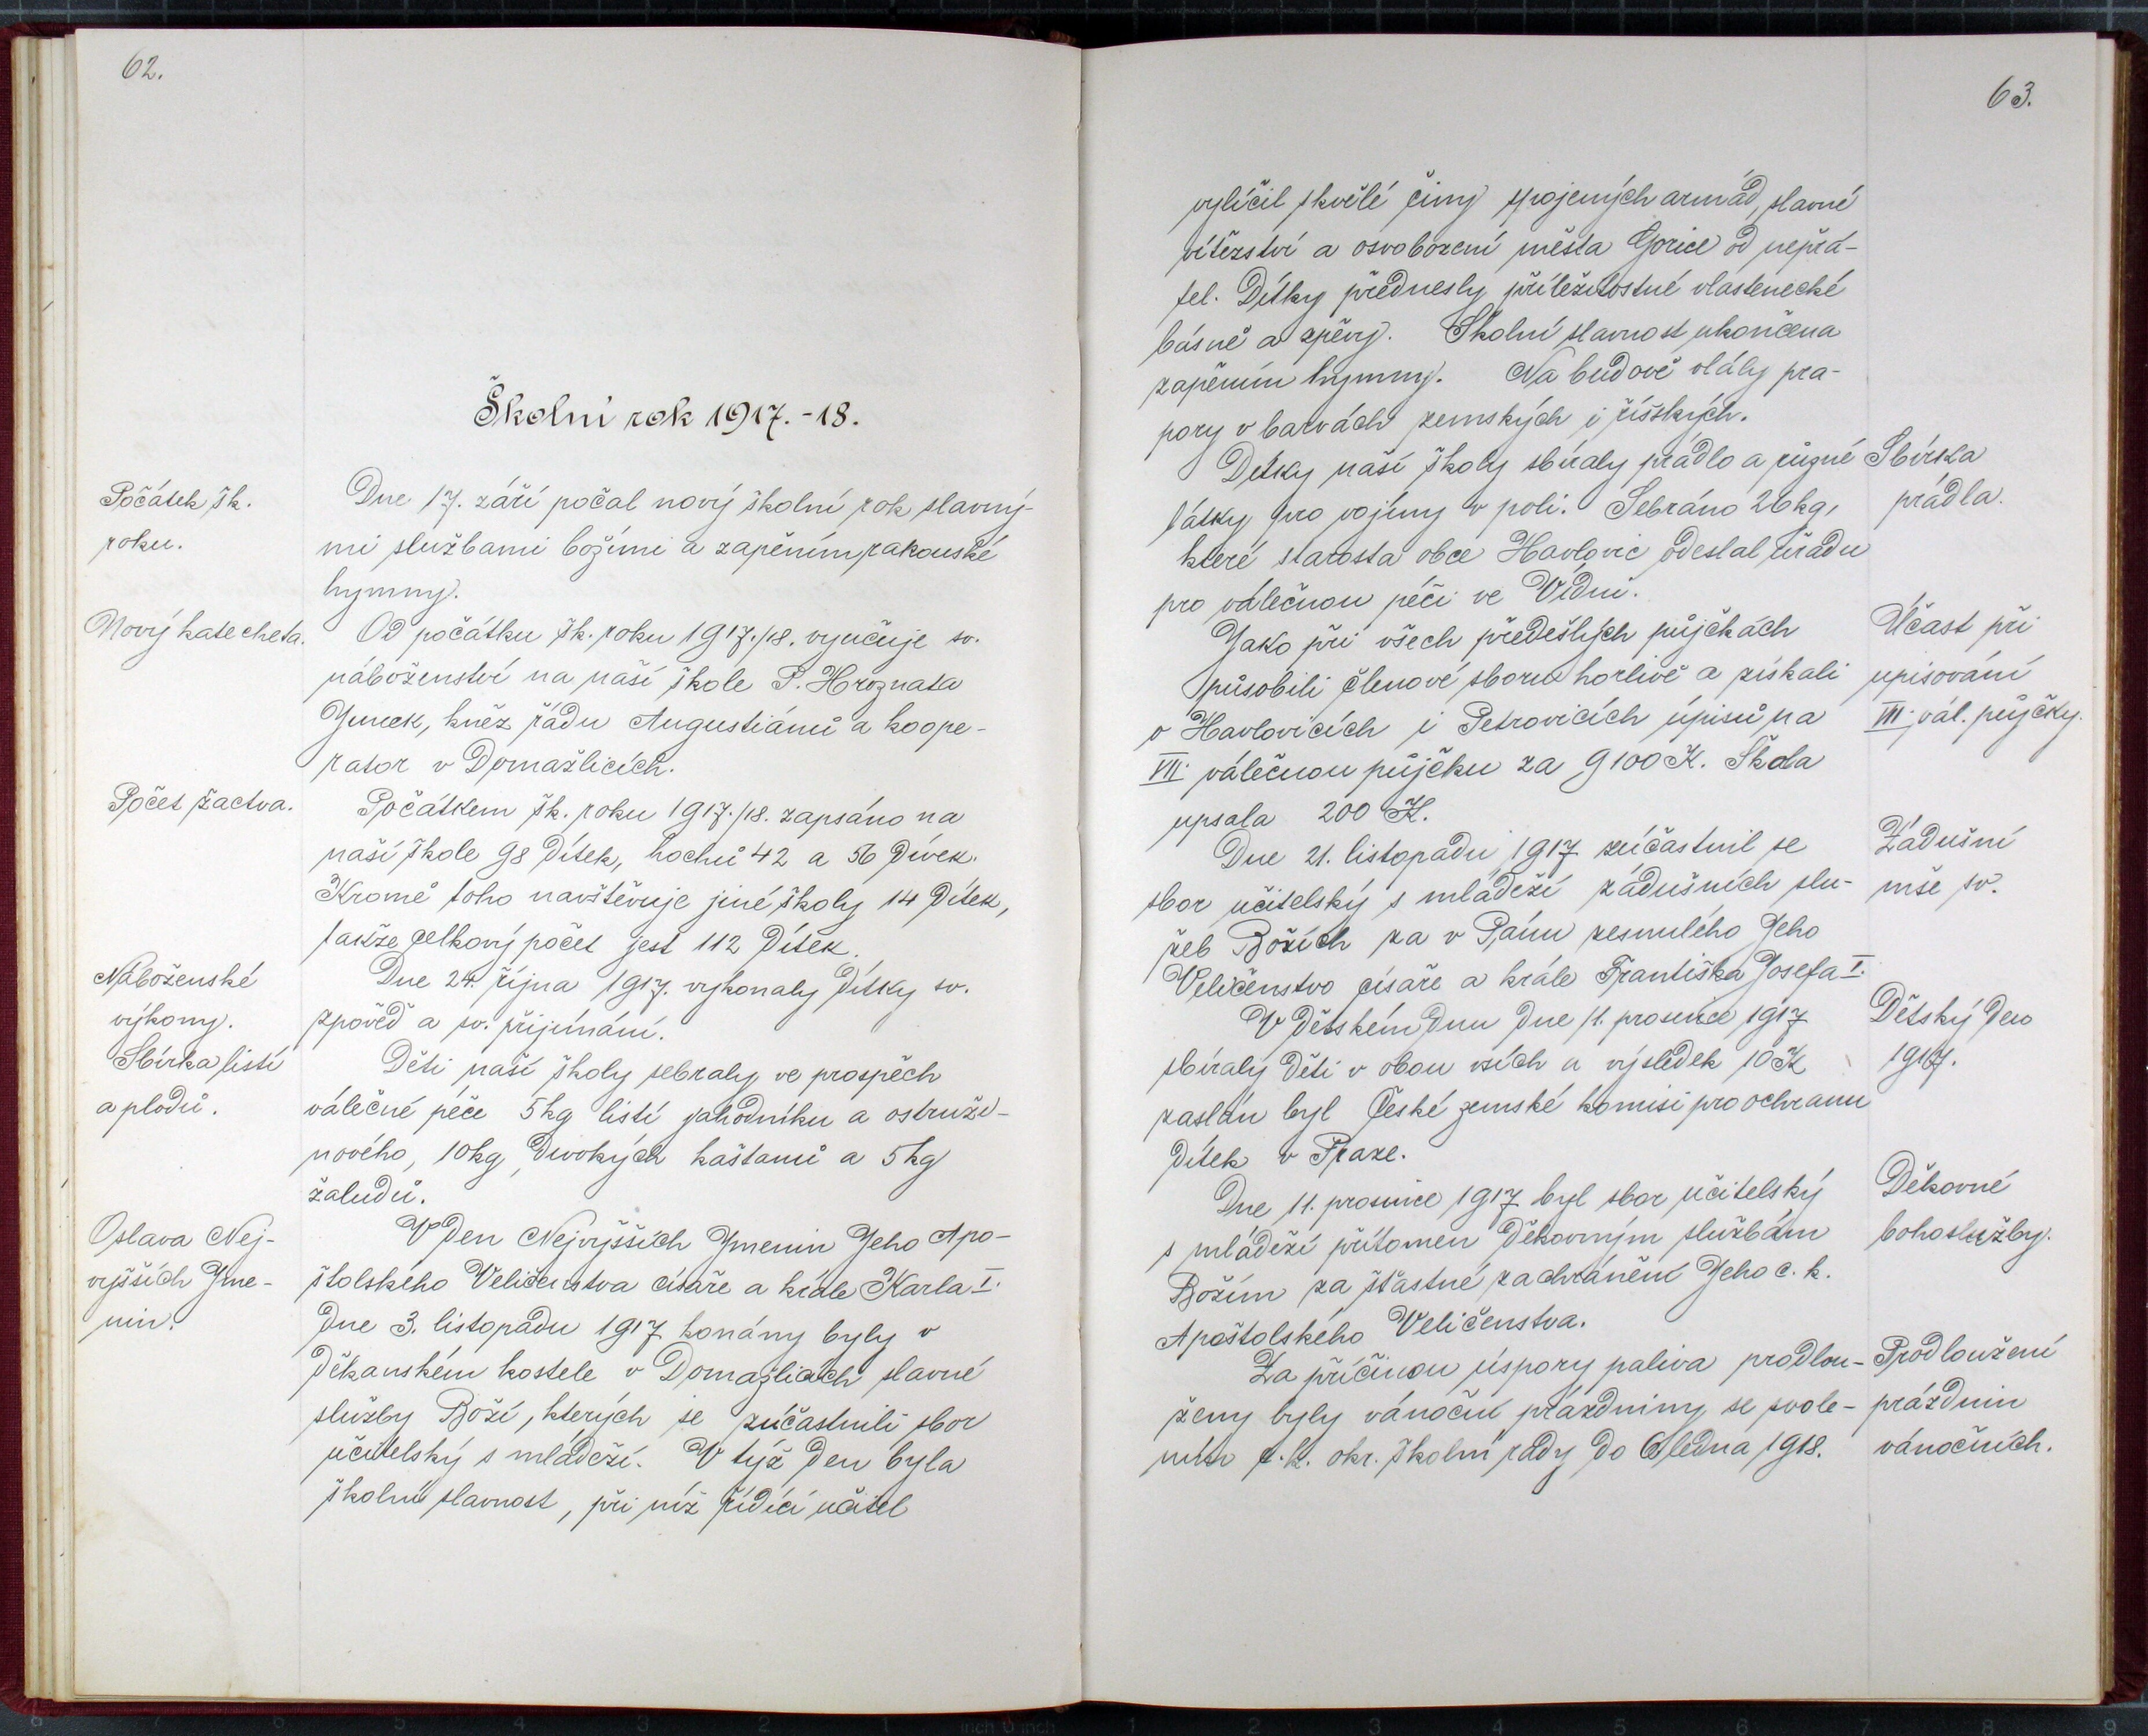 62.
Školní rok 1917.-18.
Počátek šk.
roku.
Dne 17. září počal nový školní rok slavný-
mi službami božími a zapěním rakouské
hymny.
Nový katecheta.
Od počátku šk. roku 1917./18. vyučuje sv.
náboženství na naší škole P. Hroznata
kněz řádu Augustiánů a koope-
rator v Domažlicích.
Počet žactva.
Počátkem šk. roku 1917./18. zapsáno na
naší škole 98 dítek, hochů 42 a 56 dívek.
Kromě toho navštěvuje jiné školy 14 dítek,
takže celkový počet jest 112 dítek.
Náboženské
výkony.
Dne 24. října 1917. vykonaly dítky sv.
zpověď a sv. přijímání.
Sbírka listí
a plodů.
Děti naší školy sebraly ve prospěch
válečné péče 5 kg listí jahodníku a ostruži-
nového, 10 kg divokých kaštanů a 5 kg
žaludů.
Oslava Nej-
vyšších Jme-
nin.
V den Nejvyšších Jmenin Jeho Apo-
štolského Veličenstva císaře a krále Karla I.
dne 3. listopadu 1917 konány byly v
děkanském kostele v Domažlicích slavné
služby Boží, kterých se zúčastnili sbor
učitelský s mládeží. V týž den byla
školní slavnost, při níž řídící učitel
63.
vylíčil skvělé činy spojených armád, slavné
vítězství a osvobození města Gorice od nepřá-
tel. Dítky přednesly příležitostné vlastenecké
básně a zpěvy. Školní slavnost ukončena
zapěním hymny. Na budově vlály pra-
pory v barvách zemských i říšských.
Dítky naší školy sbíraly prádlo a různé
látky pro vojíny v poli. Sebráno 26 kg,
které starosta obce Havlovic odeslal úřadu
pro válečnou péči ve Vídni.
Sbírka
prádla.
Jako při všech předešlých půjčkách
působili členové sboru horlivě a získali
v Havlovicích i Petrovicích úpisů na
VII. válečnou půjčku za 9100 K. Škola
upsala 200 K.
Účast při
upisování
VII. vál. půjčky.
Dne 21. listopadu 1917 zúčastnil se
sbor učitelský s mládeží zádušních slu-
žeb Božích za v Pánu zesnulého Jeho
Veličenstvo císaře a krále Františka Josefa I.
Zádušní
mše sv.
V Dětském dnu dne 11. prosince 1917
sbíraly děti v obou vsích a výsledek 10 K
zaslán byl České zemské komisi pro ochranu
dítek v Praze.
Dětský den
1917.
Dne 11. prosince 1917 byl sbor učitelský
s mládeží přítomen děkovným službám
Božím za šťastné zachránění Jeho c. k.
Apoštolského Veličenstva.
Děkovné
bohoslužby.
Za příčinou úspory paliva prodlou-
ženy byly vánoční prázdniny se svole-
ním c. k. okr. školní rady do 6 ledna 1918.
Prodloužení
prázdnin
vánočních.